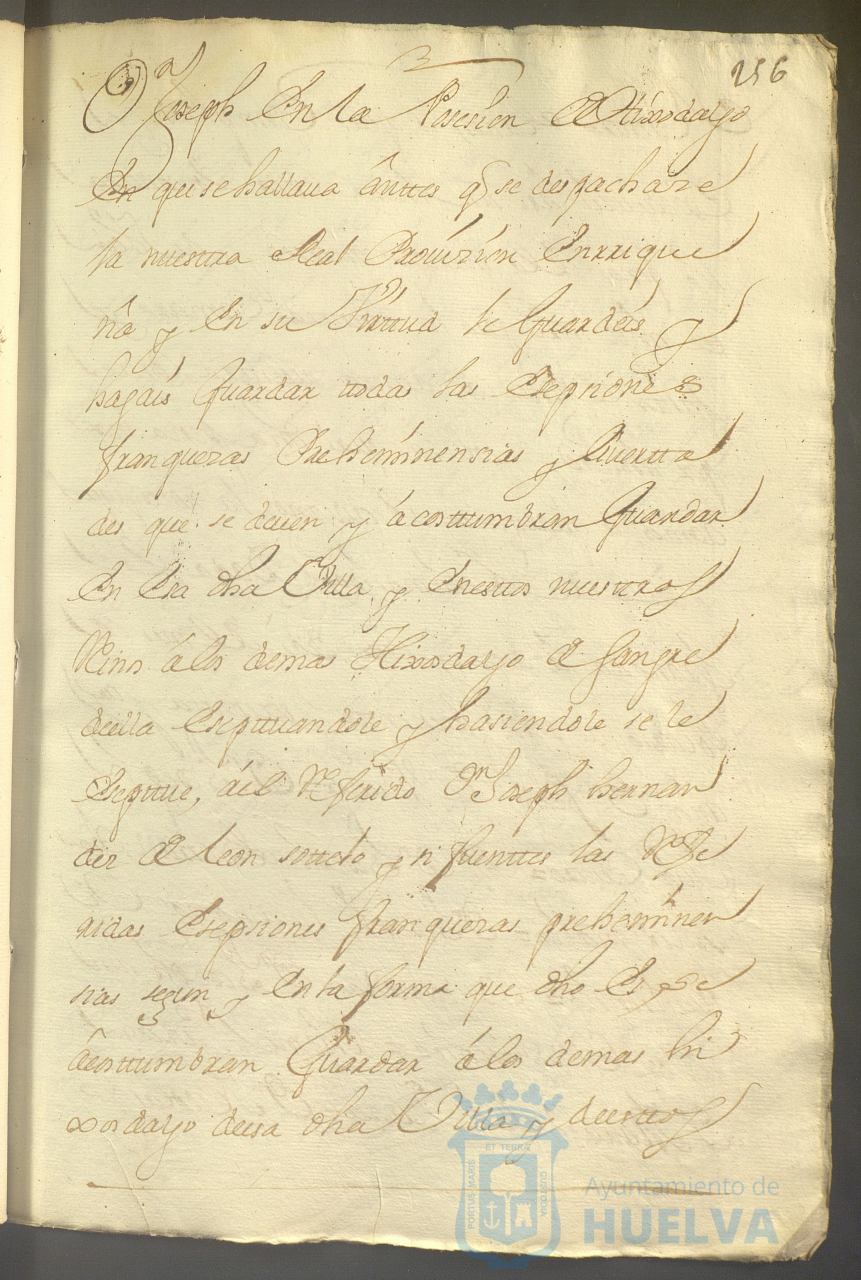 256
Dn Joseph En la Posesion de Hixodalgo
En que se hallaua ânttes q se despachare
la nuestra Real Prouizion Enrrique
ña y En su Virttud le Guardeis y
hagais Guardar ttodas las Esepsiones
franquezas Preheminensias y Liuertta
des que se deuen y âcosttumbran Guardar
En Esa dha Villa y Enesttos nuesttros
Reinos â los demas Hixosdalgo de Sangre
deella Eseptuandole y hasiendole se le
Eseptue, âel Referido Dn Joseph hernan
dez de Leon Sottelo y Sifuenttes las Refe
ridas Esepsiones franquezas preheminen
sias segun y En la forma que dho Es y se
âcosttumbran Guardar â los demas hi
xosdalgo deesa dha Villa y deesttos
PORTUS MARIS
ET TERRÆ
CUSTODIA
Ayuntamiento de
HUELVA